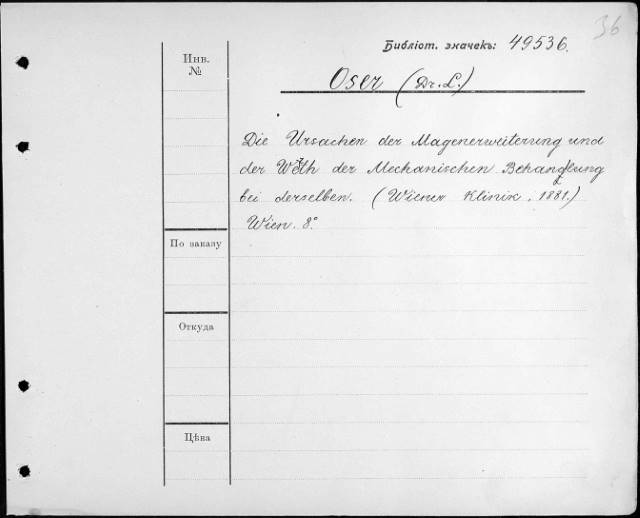 36
Библіот. значекъ: 49536.
Инв.
№
Oser (Dr. L.)
Die Ursachen der Magenerweiterung und
der Werth der Mechanischen Behandlung
bei derselben. (Wiener Klinik, 1881.)
Wien. 8°.
По заказу
Откуда
Цѣна